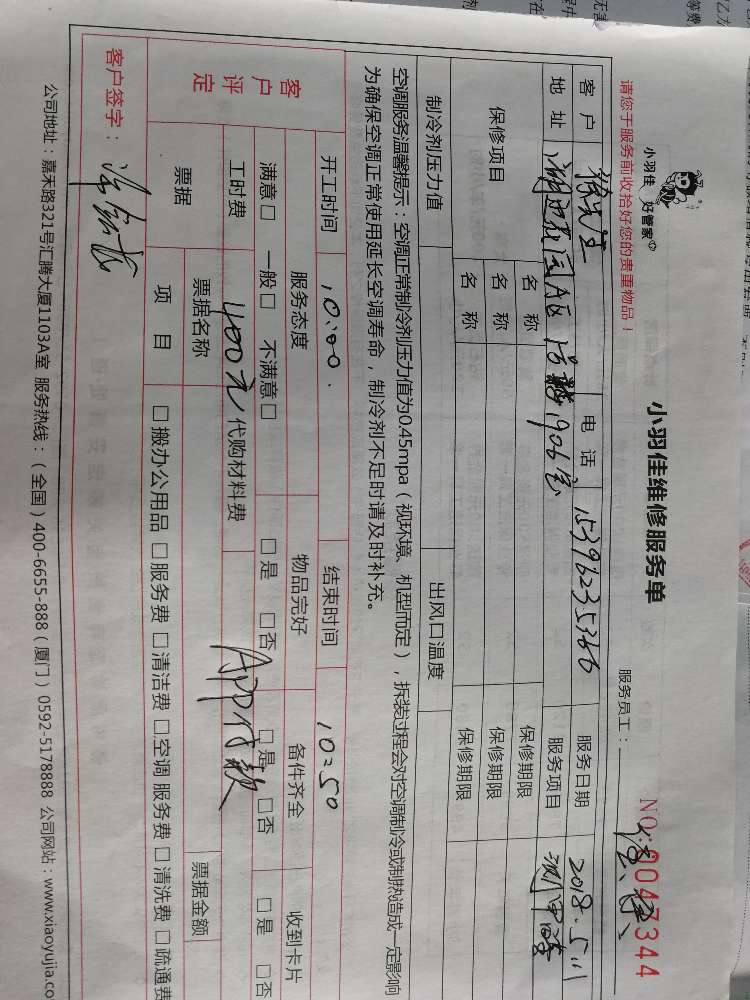 小羽佳 好管家
小羽佳维修服务单
NO:0047344
请您于服务前收拾好您的贵重物品！
服务员工：
客户 徐先生 电话 15396235366 服务日期 2018.5.11
地址 湖边花园A区 1906室 服务项目 测甲醛
保修项目 名称 保修期限
名称 保修期限
名称 保修期限
制冷剂压力值 出风口温度
空调服务温馨提示：空调正常制冷剂压力值为0.45mpa（视环境、机型而定），拆装过程会对空调制冷或制热造成一定影响
为确保空调正常使用延长空调寿命，制冷剂不足时请及时补充。
客户评定
开工时间 10:00. 结束时间 10:50
服务态度 物品完好 备件齐全 收到卡片
满意□ 一般□ 不满意□ □是 □否 □是 □否 □是 □否
工时费 400元 代购材料费 APP付款
票据 票据名称 票据金额
项目 □搬办公用品 □服务费 □清洁费 □空调服务费 □清洗费 □疏通费
客户签字：
公司地址：嘉禾路321号汇腾大厦1103A室 服务热线：（全国）400-6655-888（厦门）0592-5178888 公司网站：www.xiaoyujia.co